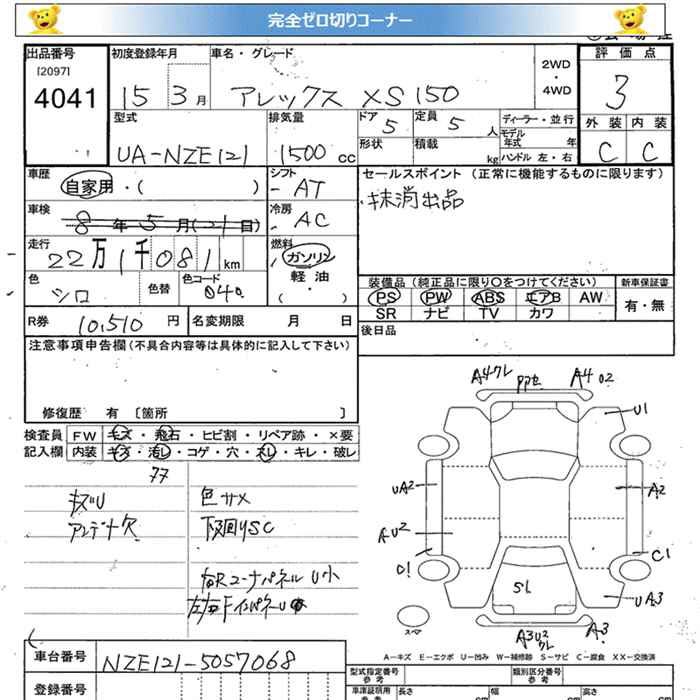 完全ゼロ切りコーナー
出品番号 初度登録年月 車名・グレード 2WD・4WD 評価点
[2097]
4041 15 3月 アレックス XS150 3
型式 排気量 ドア 5 定員 5人 ディーラー・並行 外装 内装
モデル年式 年
UA-NZE121 1500cc 形状 積載 kg ハンドル 左・右 C C
車歴 シフト セールスポイント（正常に機能するものに限ります）
自家用・( ) AT 抹消出品
車検 冷房
8年5月(21日) AC
走行 燃料
22万1千081km ガソリン・軽油・( )
色 色替 色コード 装備品（純正品に限り○をつけてください） 新車保証書
シロ 040 PS PW ABS エアB AW 有・無
R券 10,510円 名変期限 月 日 SR ナビ TV カワ
注意事項申告欄（不具合内容等は具体的に記入して下さい） 後日品
修復歴 有〔箇所 〕
検査員 FW キズ・飛石・ヒビ割・リペア跡・×要
記入欄 内装 キズ・汚レ・コゲ・穴・スレ・キレ・破レ
キズU 色サメ
アンテナ欠 下廻りSC
右Rコーナパネル U小
A4 02
U1
UA2 A2
C1
SL
UA3
A3
スペア
A－キズ E－エクボ U－凹み W－補修跡 S－サビ C－腐食 XX－交換済
車台番号 NZE121-5057068
登録番号
型式指定番号 参考 類別区分番号 参考
車庫証明用 参考 長さ cm 幅 cm 高さ cm